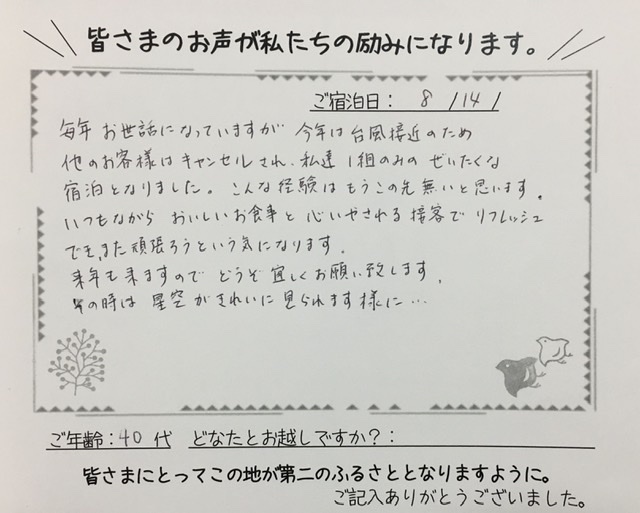 皆さまのお声が私たちの励みになります。
ご宿泊日： 8 /14/
毎年 お世話になっていますが 今年は 台風接近のため
他のお客様は キャンセルされ、私達 1組のみの ぜいたくな
宿泊となりました。こんな経験は もうこの先 無いと思います。
いつもながら おいしいお食事と 心いやされる 接客で リフレッシュ
でき、また 頑張ろうという気になります。
来年も来ますので どうぞ 宜しくお願い致します。
その時は 星空がきれいに 見られます様に…
ご年齢：40 代 どなたとお越しですか？：
皆さまにとってこの地が第二のふるさととなりますように。
ご記入ありがとうございました。